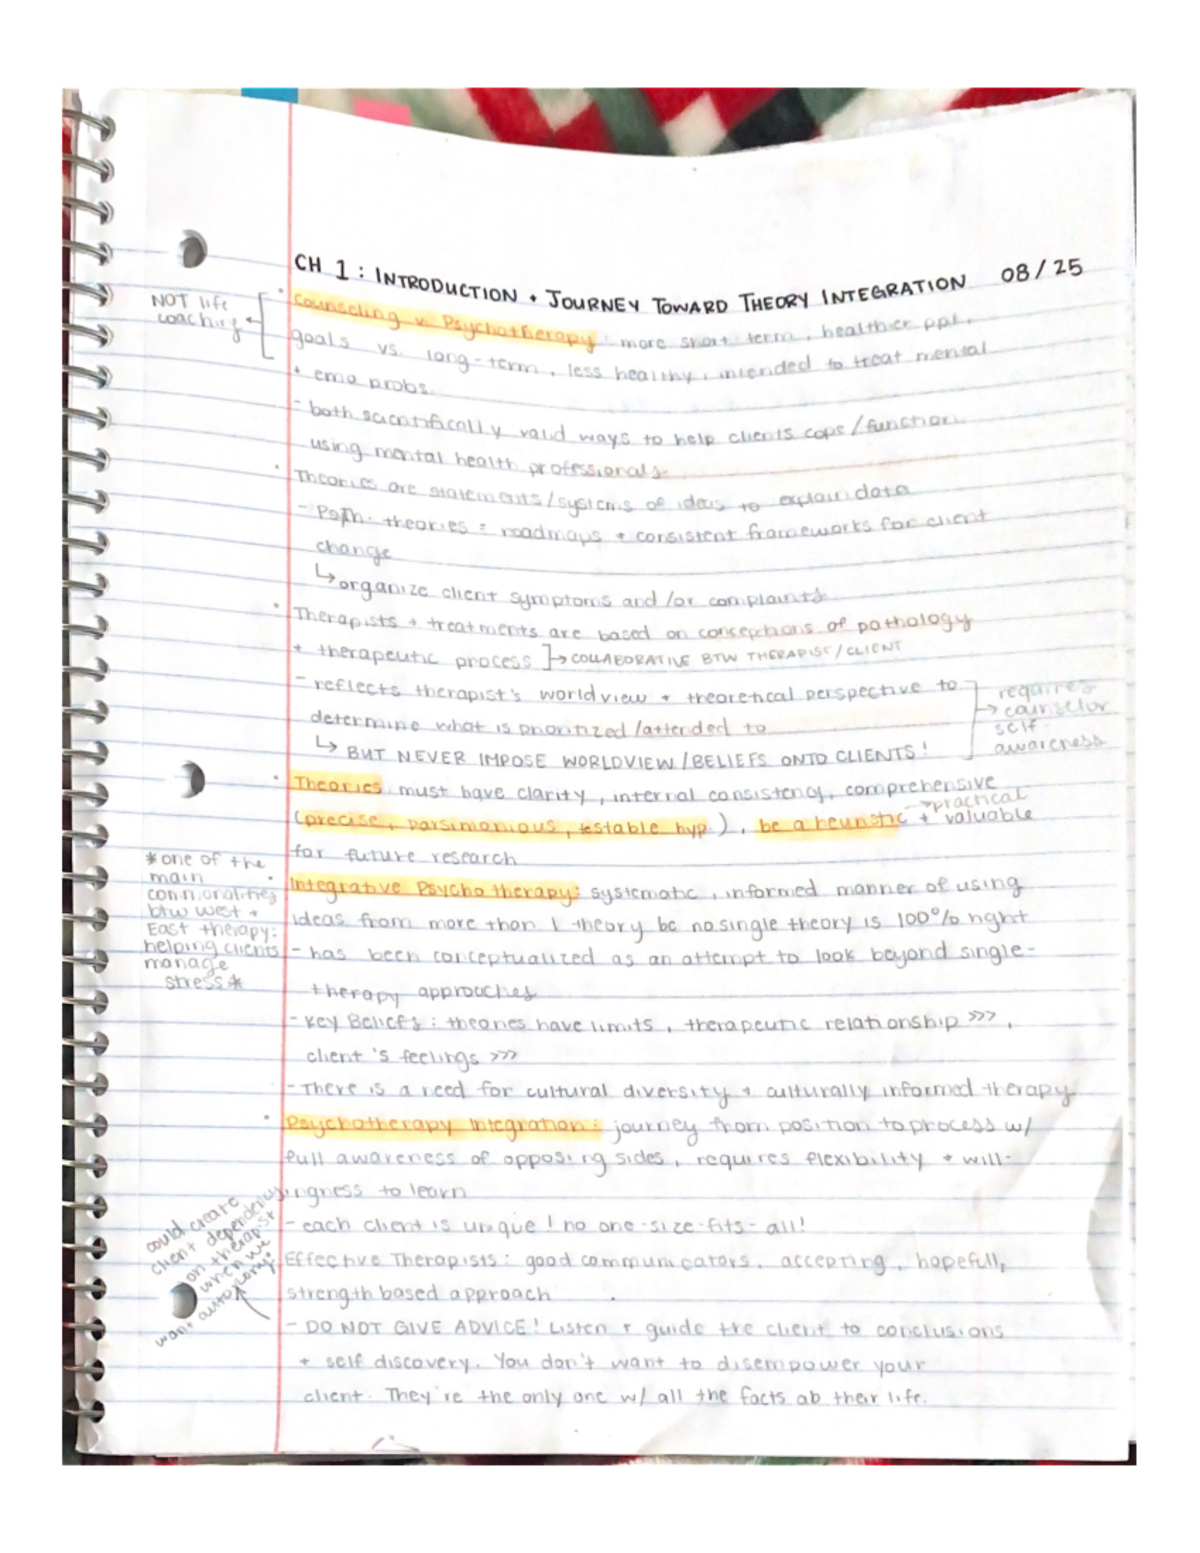 CH 1: INTRODUCTION + JOURNEY TOWARD THEORY INTEGRATION 08/25
NOT life
coaching
• Counseling v. Psychotherapy: more short-term, healthier ppl,
goals vs. long-term, less healthy, intended to treat mental
+ emo probs.
- both scientifically valid ways to help clients cope/function
using mental health professionals
• Theories are statements/systems of ideas to explain data
- Psth. theories = roadmaps + consistent frameworks for client
change
↳ organize client symptoms and/or complaints
• Therapists + treatments are based on conceptions of pathology
+ therapeutic process ]→ COLLABORATIVE BTW THERAPIST/CLIENT
- reflects therapist's worldview + theoretical perspective to
determine what is prioritized/attended to
↳ BUT NEVER IMPOSE WORLDVIEW/BELIEFS ONTO CLIENTS!
requires
→ counselor
self-
awareness
• Theories must have clarity, internal consistency, comprehensive
(precise, parsimonious, testable hyp.), be a heuristic + valuable
→practical
for future research
*one of the
main
commonalities
btw west +
East therapy:
helping clients
manage
stress*
• Integrative Psychotherapy: systematic, informed manner of using
ideas from more than 1 theory bc no single theory is 100% right
- has been conceptualized as an attempt to look beyond single-
therapy approaches
- Key Beliefs: theories have limits, therapeutic relationship >>>,
client's feelings >>>
- There is a need for cultural diversity + culturally informed therapy
• Psychotherapy Integration: journey from position to process w/
full awareness of opposing sides, requires flexibility + will-
ingness to learn
- each client is unique! no one-size-fits-all!
Effective Therapists: good communicators, accepting, hopeful,
strength based approach
- DO NOT GIVE ADVICE! Listen + guide the client to conclusions
+ self discovery. You don't want to disempower your
client. They're the only one w/ all the facts ab their life.
could create
client dependency
on therapist
when we
want autonomy.